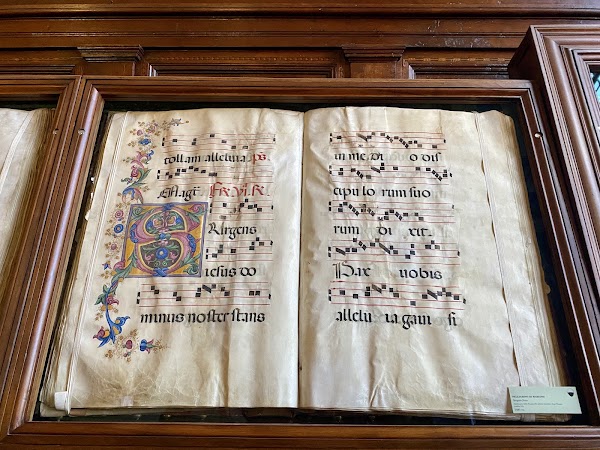 collam alleluia. ps
Urgens
iesus do
minus noster stans
in me di o dis
cipu lo rum suo
rum di xit.
Pax vobis
allelu ia gaui si